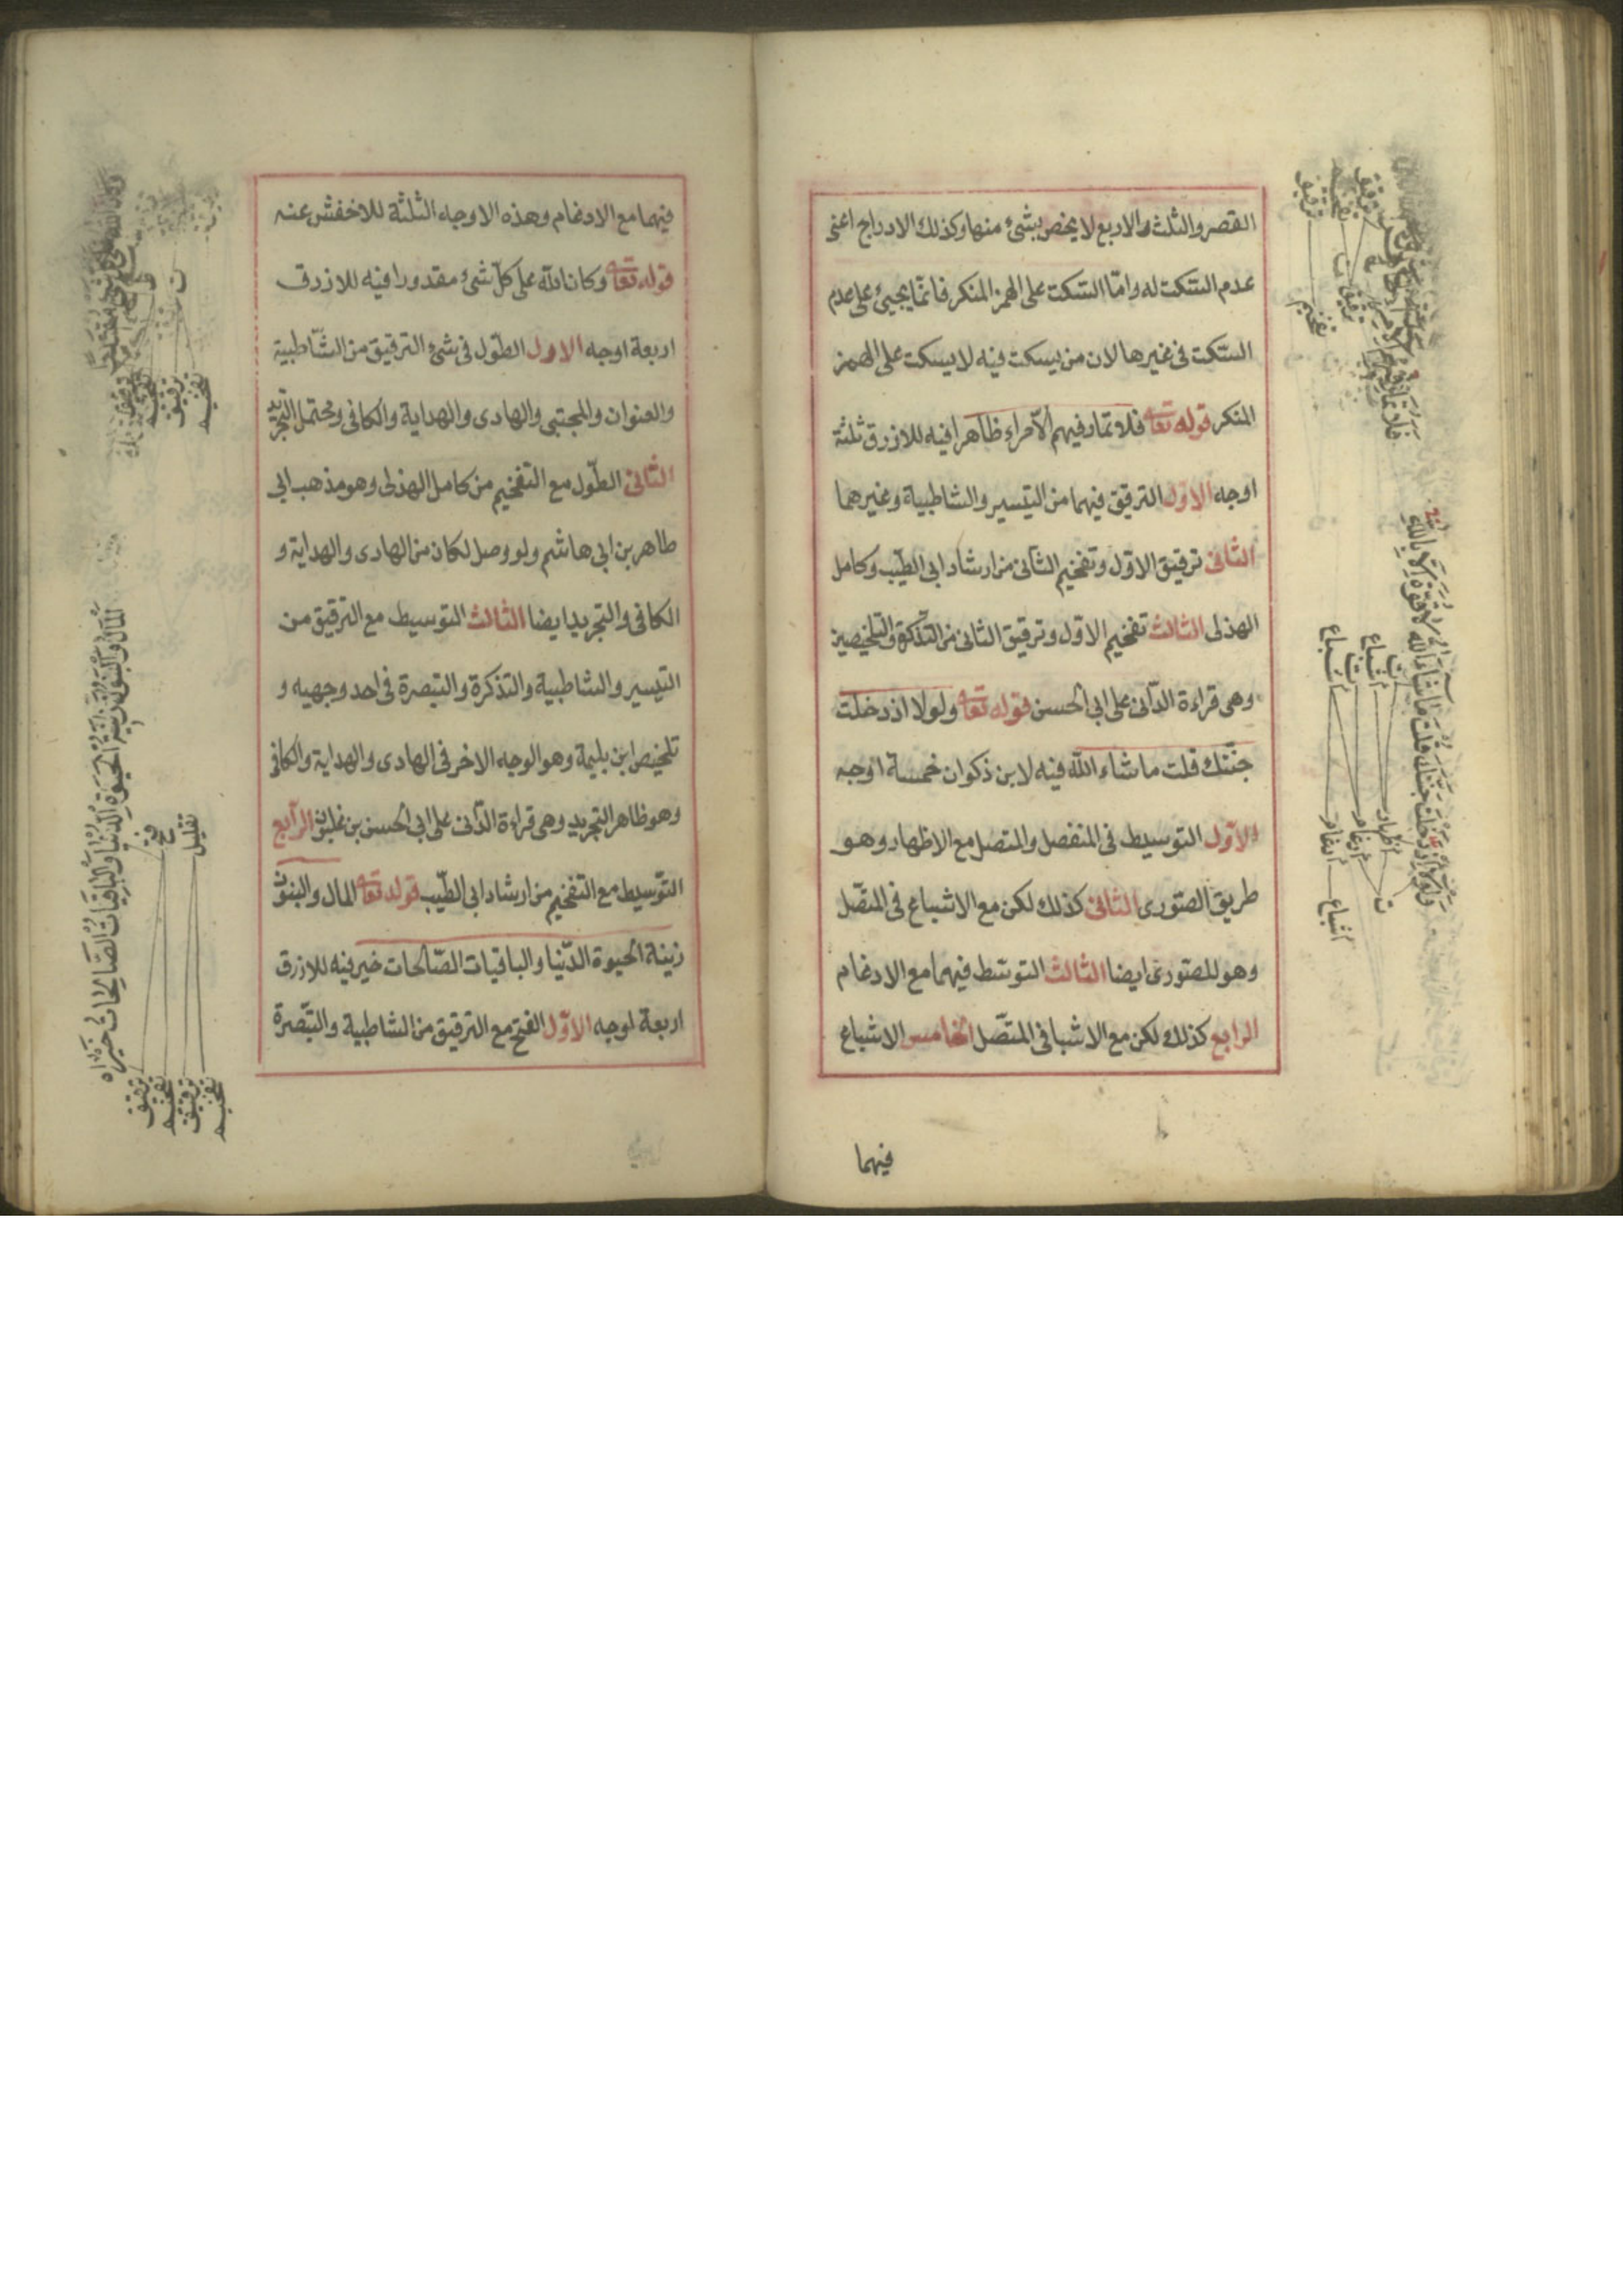 القصر والثلث والاربع لا يخص بشئ منها وكذلك الادراج اعنى
عدم السّكت له وامّا السّكت على الهمز المنكر فانمّا يجيئ على عدم
السّكت فى غيرها لان من يسكت فيه لا يسكت على الهمز
المنكر قوله تعا فلا تمار فيهم الّا مراء ظاهرا فيه للازرق ثلثة
اوجه الاوّل الترقيق فيهما من التيسير والشاطبية وغيرهما
الثانى ترقيق الاوّل وتفخيم الثانى من ارشاد ابى الطيّب وكامل
الهذلى الثالث تفخيم الاوّل وترقيق الثانى من التّذكرة والتلخيصين
وهى قراءة الدّانى على ابى الحسن قوله تعا ولولا اذ دخلت
جنّتك قلت ما شاء اللّه فيه لابن ذكوان خمسة اوجه
الاوّل التوسيط فى المنفصل والمتصل مع الاظهار وهو
طريق الصّورى الثانى كذلك لكن مع الاشباع فى المتّصل
وهو للصّورى ايضا الثالث التوسّط فيهما مع الادغام
الرابع كذلك لكن مع الاشبا فى المتّصل الخامس الاشباع
فيهما
ولولا اذ دخلت جنتك قلت ما شاء الله لا قوة الا بالله
اظهار
ادغام
ادغام
اشباع
اشباع
اشباع
ترقيق
تفخيم
فيهما مع الادغام وهذه الاوجه الثلثة للاخفش عنه
قوله تعا وكان اللّه على كلّ شئ مقدورا فيه للازرق
اربعة اوجه الاول الطّول فى شئ الترقيق من الشّاطبية
والعنوان والمجتبى والهادى والهداية والكافى ومحتمل التجريد
الثانى الطّول مع التفخيم من كامل الهذلى وهو مذهب ابى
طاهر بن ابى هاشم ولو وصل لكان من الهادى والهداية و
الكافى والتجريد ايضا الثالث التوسيط مع الترقيق من
التيسير والشاطبية والتذكرة والتبصرة فى احد وجهيه و
تلخيص ابن بليمة وهو الوجه الاخر فى الهادى والهداية والكافى
وهو ظاهر التجريد وهى قراءة الدّانى على ابى الحسن بن غلبون الرّابع
التّوسيط مع التفخيم من ارشاد ابى الطّيب قوله تعا المال والبنون
زينة الحيوة الدّنيا والباقيات الصّالحات خير فيه للازرق
اربعة اوجه الاوّل الفتح مع الترقيق من الشاطبية والتّبصرة
المال والبنون زينة الحيوة الدنيا والباقيات الصالحات خير
فتح
تقليل
ترقيق
تفخيم
ترقيق
تفخيم